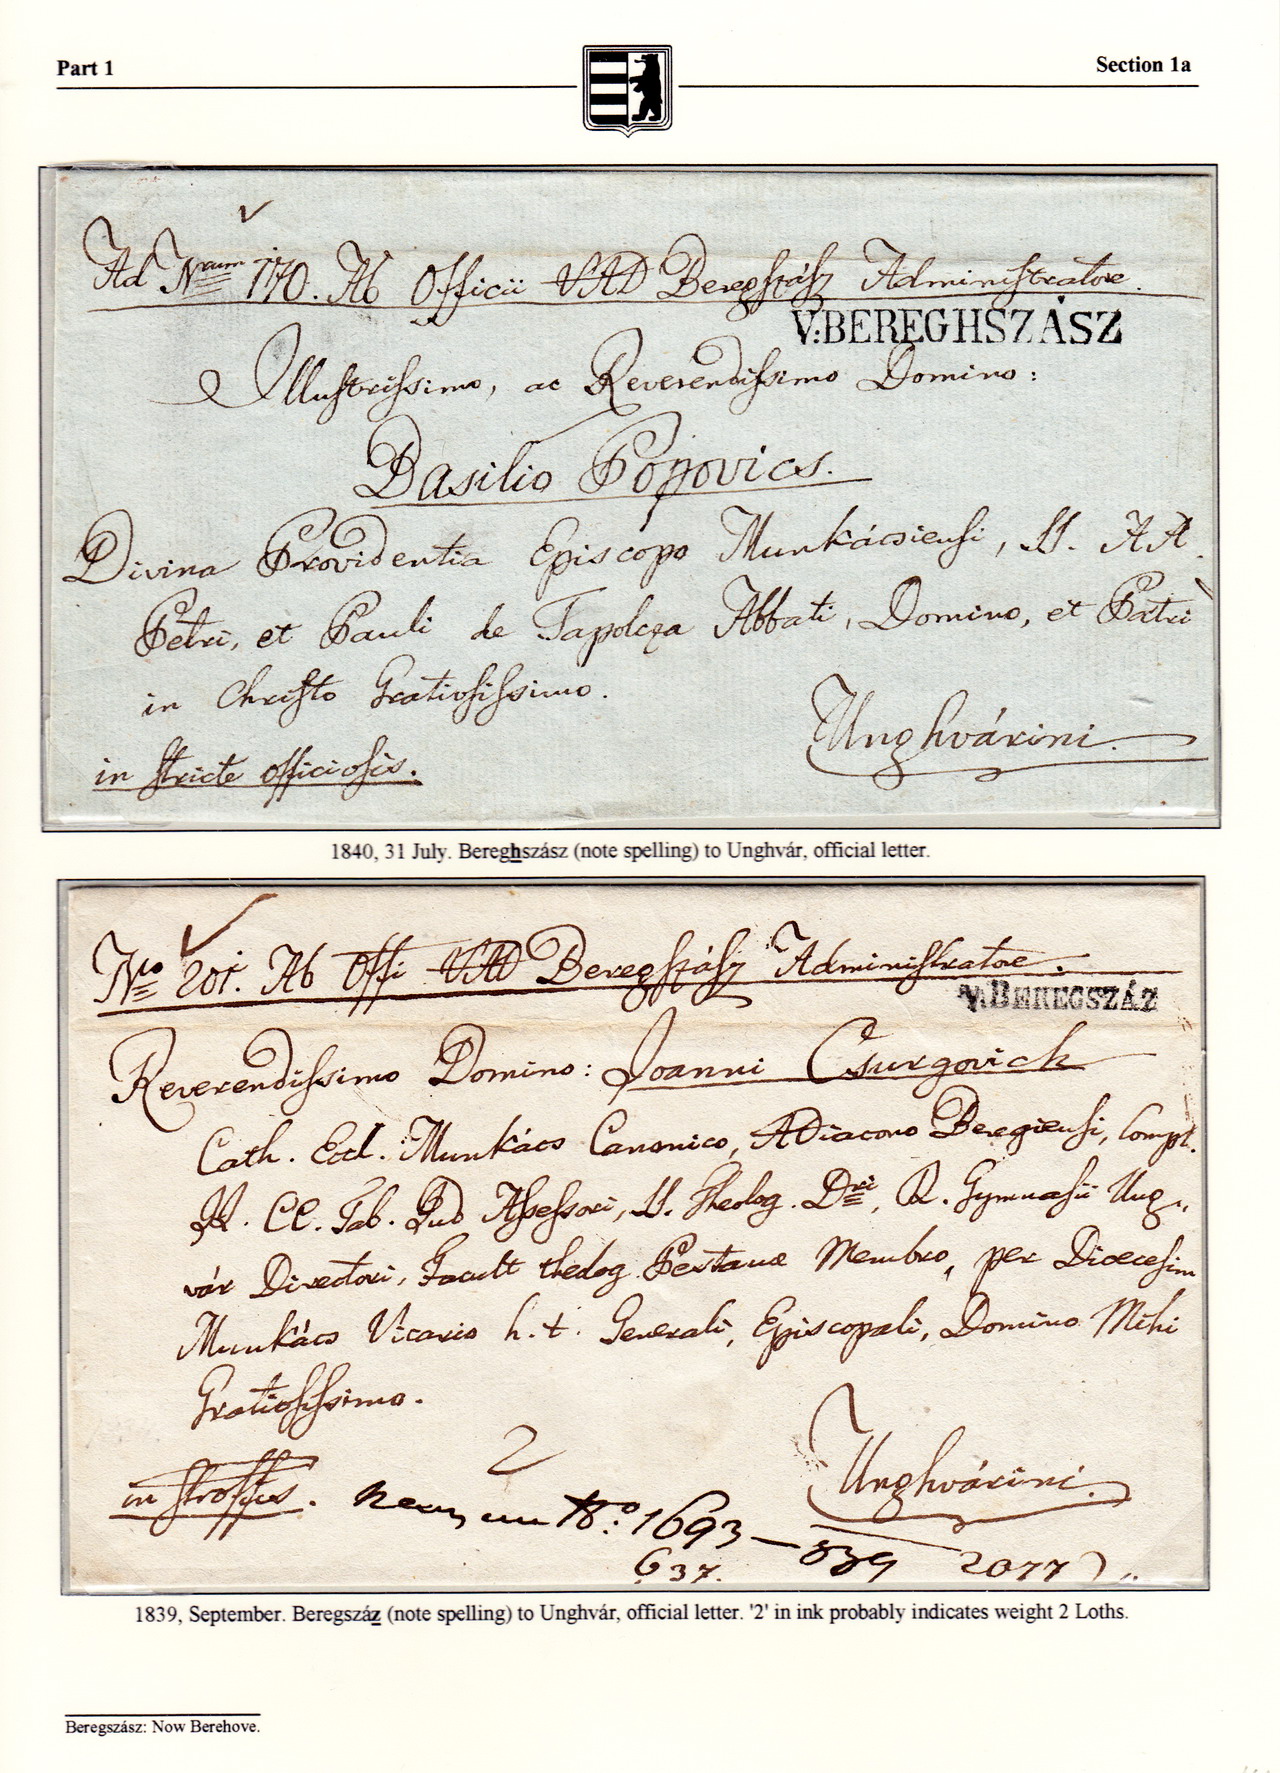 Part 1
Section 1a
Ad Num 170. Ab Officii VAD Beregszász Administratore.
V:BEREGHSZÁSZ
Illustrissimo, ac Reverendissimo Domino:
Basilio Popovics.
Divina Providentia Episcopo Munkácsiensi, SS. AA.
Petri, et Pauli de Tapolcza Abbati, Domino, et Patri
in Christo Gratiosissimo.
Unghvárini.
in stricte officiosis.
1840, 31 July. Bereghszász (note spelling) to Unghvár, official letter.
Nro 201. Ab Offi VAD Beregszász Administratore.
V:BEREGSZÁZ
Reverendissimo Domino: Joanni Csurgovich
Cath. Eccl. Munkács Canonico, ADiacono Beregiensi, Compl.
CC. Tab. Jud Assessori, SS. Theolog. Dri, R. Gymnasii Ung„
vár Directori, Facult theolog Pestanae Membro, per Dioecesim
Munkács Vicario h. t. Generali, Episcopali, Domino Mihi
Gratiosissimo.
2
Unghvárini.
in
1693 – 839 2077
637.
1839, September. Beregszáz (note spelling) to Unghvár, official letter. '2' in ink probably indicates weight 2 Loths.
Beregszász: Now Berehove.